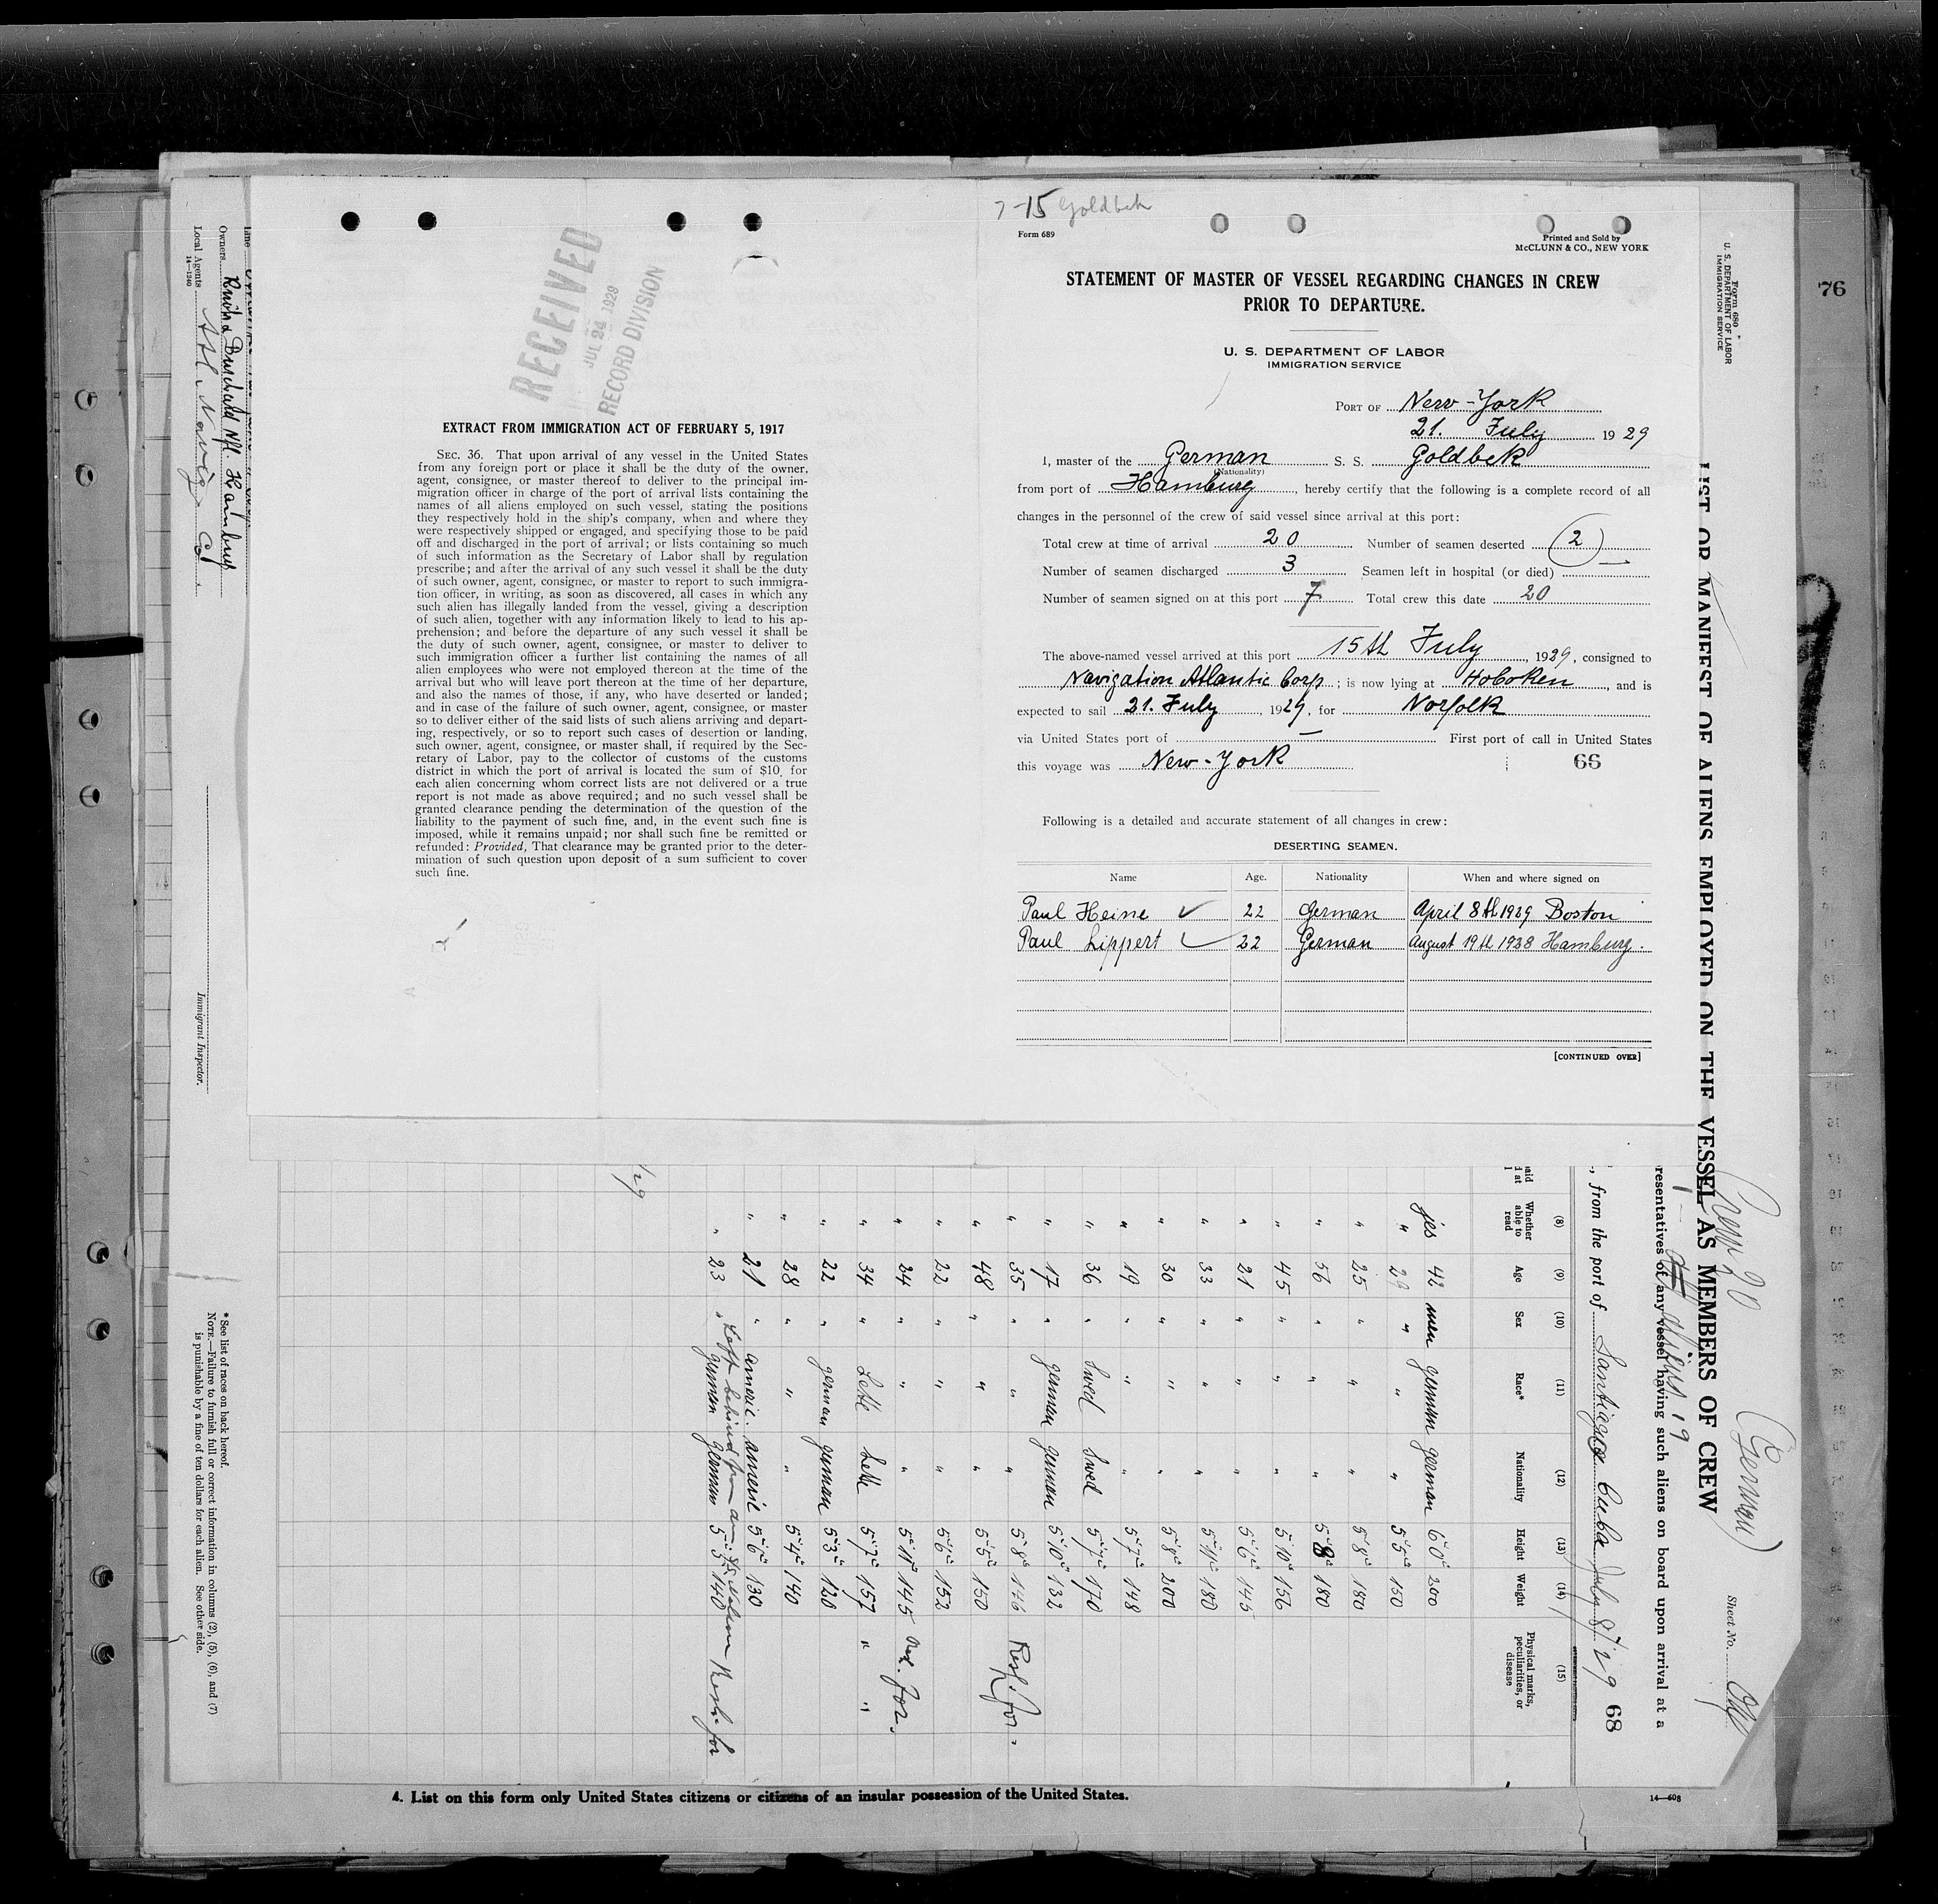 76
7-15 Goldbek
Form 689
Printed and Sold by
McCLUNN & CO., NEW YORK
STATEMENT OF MASTER OF VESSEL REGARDING CHANGES IN CREW
PRIOR TO DEPARTURE.
U. S. DEPARTMENT OF LABOR
IMMIGRATION SERVICE
PORT OF New-York
21. July 1929
I, master of the German S. S. Goldbek
(Nationality)
from port of Hamburg, hereby certify that the following is a complete record of all
changes in the personnel of the crew of said vessel since arrival at this port:
Total crew at time of arrival 20 Number of seamen deserted 2
Number of seamen discharged 3 Seamen left in hospital (or died) —
Number of seamen signed on at this port 7 Total crew this date 20
The above-named vessel arrived at this port 15th July, 1929, consigned to
Navigation Atlantic Corp; is now lying at Hoboken, and is
expected to sail 21. July, 1929, for Norfolk
via United States port of — First port of call in United States
this voyage was New-York 66
Following is a detailed and accurate statement of all changes in crew:
DESERTING SEAMEN.
Name Age. Nationality When and where signed on
Paul Heine ✓ 22 German April 8th 1929 Boston
Paul Lippert ✓ 22 German August 19th 1928 Hamburg.
[CONTINUED OVER]
RECEIVED
JUL 24 1929
RECORD DIVISION
EXTRACT FROM IMMIGRATION ACT OF FEBRUARY 5, 1917
SEC. 36. That upon arrival of any vessel in the United States
from any foreign port or place it shall be the duty of the owner,
agent, consignee, or master thereof to deliver to the principal im-
migration officer in charge of the port of arrival lists containing the
names of all aliens employed on such vessel, stating the positions
they respectively hold in the ship's company, when and where they
were respectively shipped or engaged, and specifying those to be paid
off and discharged in the port of arrival; or lists containing so much
of such information as the Secretary of Labor shall by regulation
prescribe; and after the arrival of any such vessel it shall be the duty
of such owner, agent, consignee, or master to report to such immigra-
tion officer, in writing, as soon as discovered, all cases in which any
such alien has illegally landed from the vessel, giving a description
of such alien, together with any information likely to lead to his ap-
prehension; and before the departure of any such vessel it shall be
the duty of such owner, agent, consignee, or master to deliver to
such immigration officer a further list containing the names of all
alien employees who were not employed thereon at the time of the
arrival but who will leave port thereon at the time of her departure,
and also the names of those, if any, who have deserted or landed;
and in case of the failure of such owner, agent, consignee, or master
so to deliver either of the said lists of such aliens arriving and depart-
ing, respectively, or so to report such cases of desertion or landing,
such owner, agent, consignee, or master shall, if required by the Sec-
retary of Labor, pay to the collector of customs of the customs
district in which the port of arrival is located the sum of $10 for
each alien concerning whom correct lists are not delivered or a true
report is not made as above required; and no such vessel shall be
granted clearance pending the determination of the question of the
liability to the payment of such fine, and, in the event such fine is
imposed, while it remains unpaid; nor shall such fine be remitted or
refunded: Provided, That clearance may be granted prior to the deter-
mination of such question upon deposit of a sum sufficient to cover
such fine.
Form 680
U. S. DEPARTMENT OF LABOR
IMMIGRATION SERVICE
(German)
Sheet No.
LIST OR MANIFEST OF ALIENS EMPLOYED ON THE VESSEL AS MEMBERS OF CREW
aliens 19
presentatives of any vessel having such aliens on board upon arrival at a
, from the port of Santiago Cuba July 8/29 68
(8) (9) (10) (11) (12) (13) (14) (15)
Whether able to read Age Sex Race* Nationality Height Weight Physical marks, peculiarities, or disease
yes 42 men german german 6'0" 200
" 29 " " " 5'5" 150
" 25 " " 5'8" 180
" 56 " " " 5'8" 180
" 45 " " " 5'10" 156
" 21 " " " 5'6" 145
" 33 " " " 5'11" 180
" 30 " " " 5'8" 200
" 19 " " " 5'7" 148
" 36 " Swed Swed 5'7" 170
" 17 " german german 5'10" 132
" 35 " " " 5'8" 146
" 48 " " " 5'5" 150
" 22 " " " 5'6" 152
" 24 " " " 5'11" 145
" 34 " Lett Lett 5'7" 157 " "
" 22 " german german 5'3" 120
" 28 " " " 5'4" 140
" 21 " americ. americ 5'6" 130
Left behind from
" 23 " german german 5'5" 140
/29
* See list of races on back hereof.
NOTE.—Failure to furnish full or correct information in columns (2), (5), (6), and (7)
is punishable by a fine of ten dollars for each alien. See other side.
Line
Owners Hamburg
Local Agents Atl. Navig. Co.
14—1240
Immigrant Inspector.
4. List on this form only United States citizens or citizens of an insular possession of the United States.
14—608